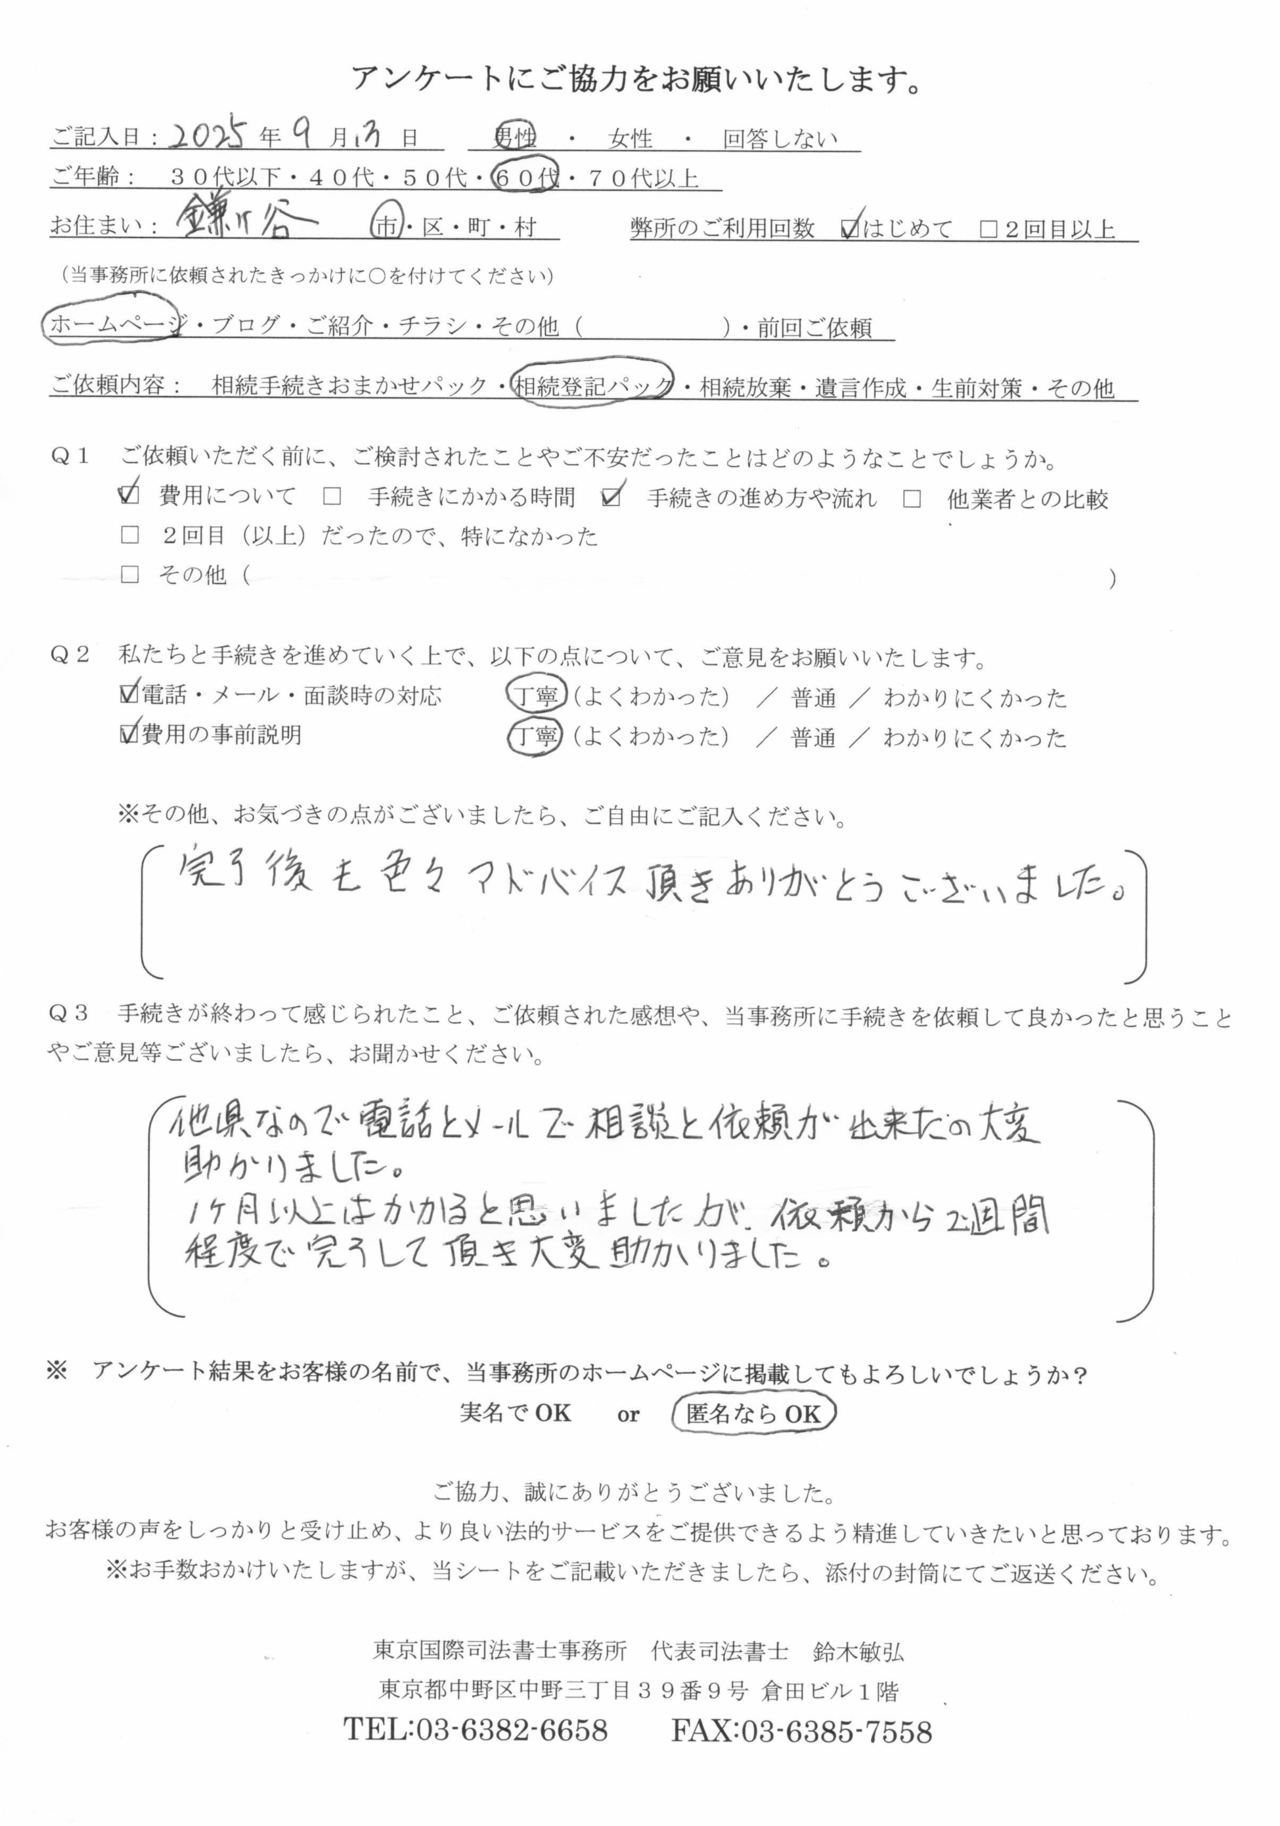 アンケートにご協力をお願いいたします。
ご記入日：2025年 9 月 13 日　男性　・　女性　・　回答しない
ご年齢：　３０代以下・４０代・５０代・６０代・７０代以上
お住まい：鎌ヶ谷　市・区・町・村　弊所のご利用回数　☑はじめて　□２回目以上
（当事務所に依頼されたきっかけに○を付けてください）
ホームページ・ブログ・ご紹介・チラシ・その他（　　　　　　）・前回ご依頼
ご依頼内容：　相続手続きおまかせパック・相続登記パック・相続放棄・遺言作成・生前対策・その他
Ｑ１　ご依頼いただく前に、ご検討されたことやご不安だったことはどのようなことでしょうか。
☑　費用について　□　手続きにかかる時間　☑　手続きの進め方や流れ　□　他業者との比較
□　２回目（以上）だったので、特になかった
□　その他（　　　　　　　　　　　　）
Ｑ２　私たちと手続きを進めていく上で、以下の点について、ご意見をお願いいたします。
☑電話・メール・面談時の対応　丁寧（よくわかった）　／　普通　／　わかりにくかった
☑費用の事前説明　丁寧（よくわかった）　／　普通　／　わかりにくかった
※その他、お気づきの点がございましたら、ご自由にご記入ください。
完了後も色々アドバイス頂きありがとうございました。
Ｑ３　手続きが終わって感じられたこと、ご依頼された感想や、当事務所に手続きを依頼して良かったと思うこと
やご意見等ございましたら、お聞かせください。
他県なので電話とメールで相談と依頼が出来たの大変
助かりました。
1ヶ月以上はかかると思いましたが、依頼から2週間
程度で完了して頂き大変助かりました。
※　アンケート結果をお客様の名前で、当事務所のホームページに掲載してもよろしいでしょうか？
実名で OK　or　匿名なら OK
ご協力、誠にありがとうございました。
お客様の声をしっかりと受け止め、より良い法的サービスをご提供できるよう精進していきたいと思っております。
※お手数おかけいたしますが、当シートをご記載いただきましたら、添付の封筒にてご返送ください。
東京国際司法書士事務所　代表司法書士　鈴木敏弘
東京都中野区中野三丁目３９番９号 倉田ビル１階
TEL:03-6382-6658　FAX:03-6385-7558